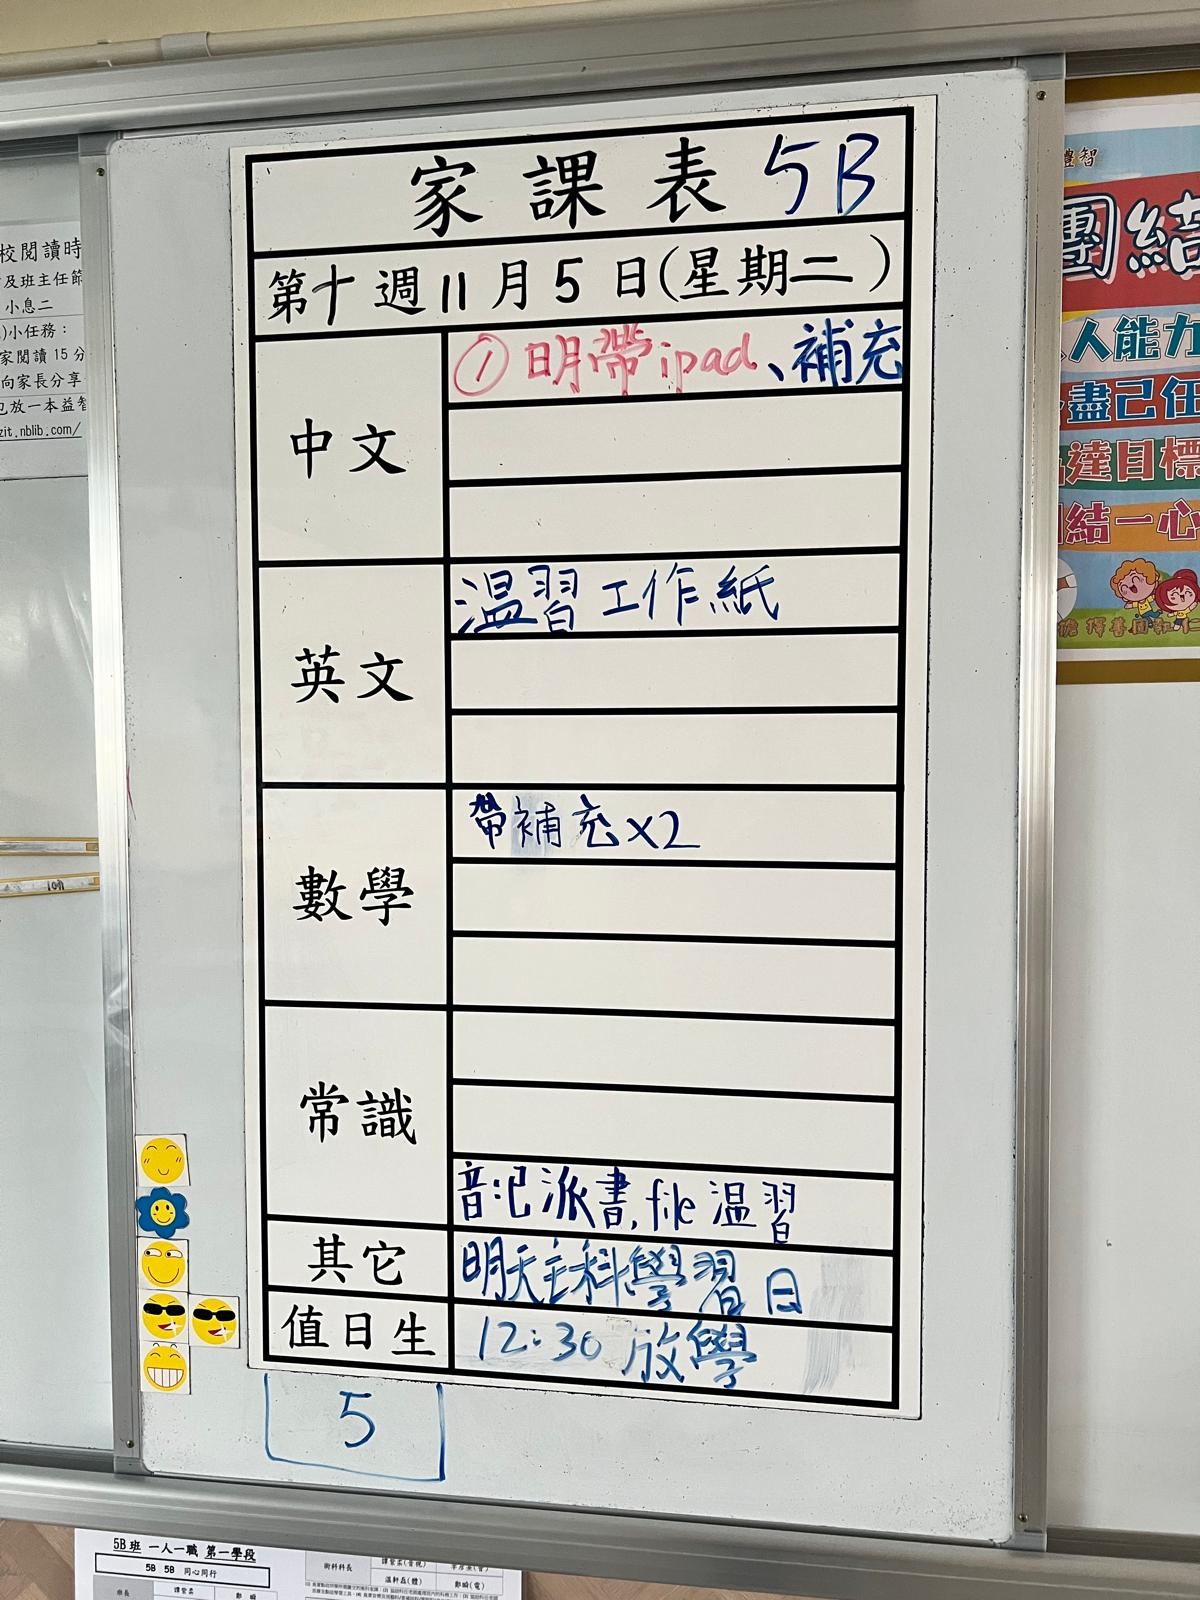 家課表 5B
第十週11月5日(星期二)
中文
① 明帶ipad、補充
英文
温習工作紙
數學
帶補充x2
常識
音:已派書,file温習
其它
明天主科學習日
值日生
12:30放學
5
校閱讀時
及班主任節
小息二
小任務:
家閱讀15分
向家長分享
放一本益智
zit.nblib.com/
禮智
團結
人能力
盡己任
達目標
結一心
5B班 一人一職 第一學段
5B 5B 同心同行
班長
術科科長